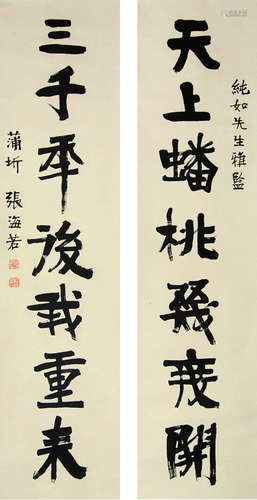 純如先生雅監
天上蟠桃幾度開
三千年後我重来
蒲圻 張海若